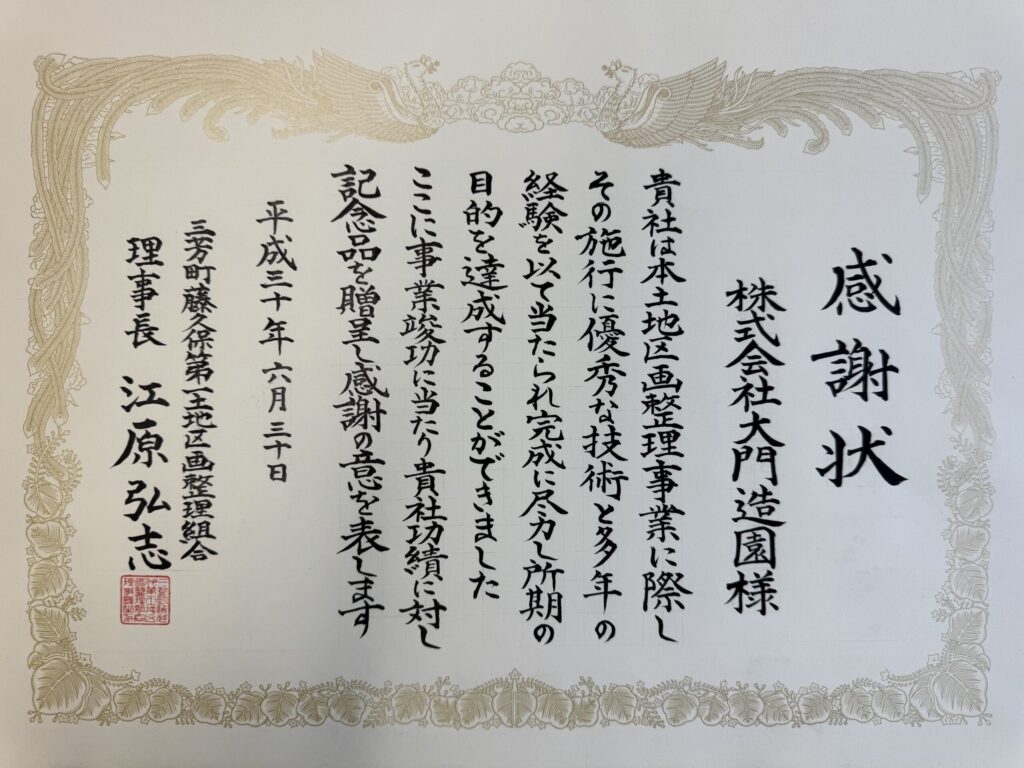 感謝状
株式会社大門造園様
貴社は本土地区画整理事業に際し
その施行に優秀な技術と多年の
経験を以て当たられ完成に尽力し所期の
目的を達成することができました
ここに事業竣功に当たり貴社功績に対し
記念品を贈呈し感謝の意を表します
平成三十年六月三十日
三芳町藤久保第一土地区画整理組合
理事長 江原弘志